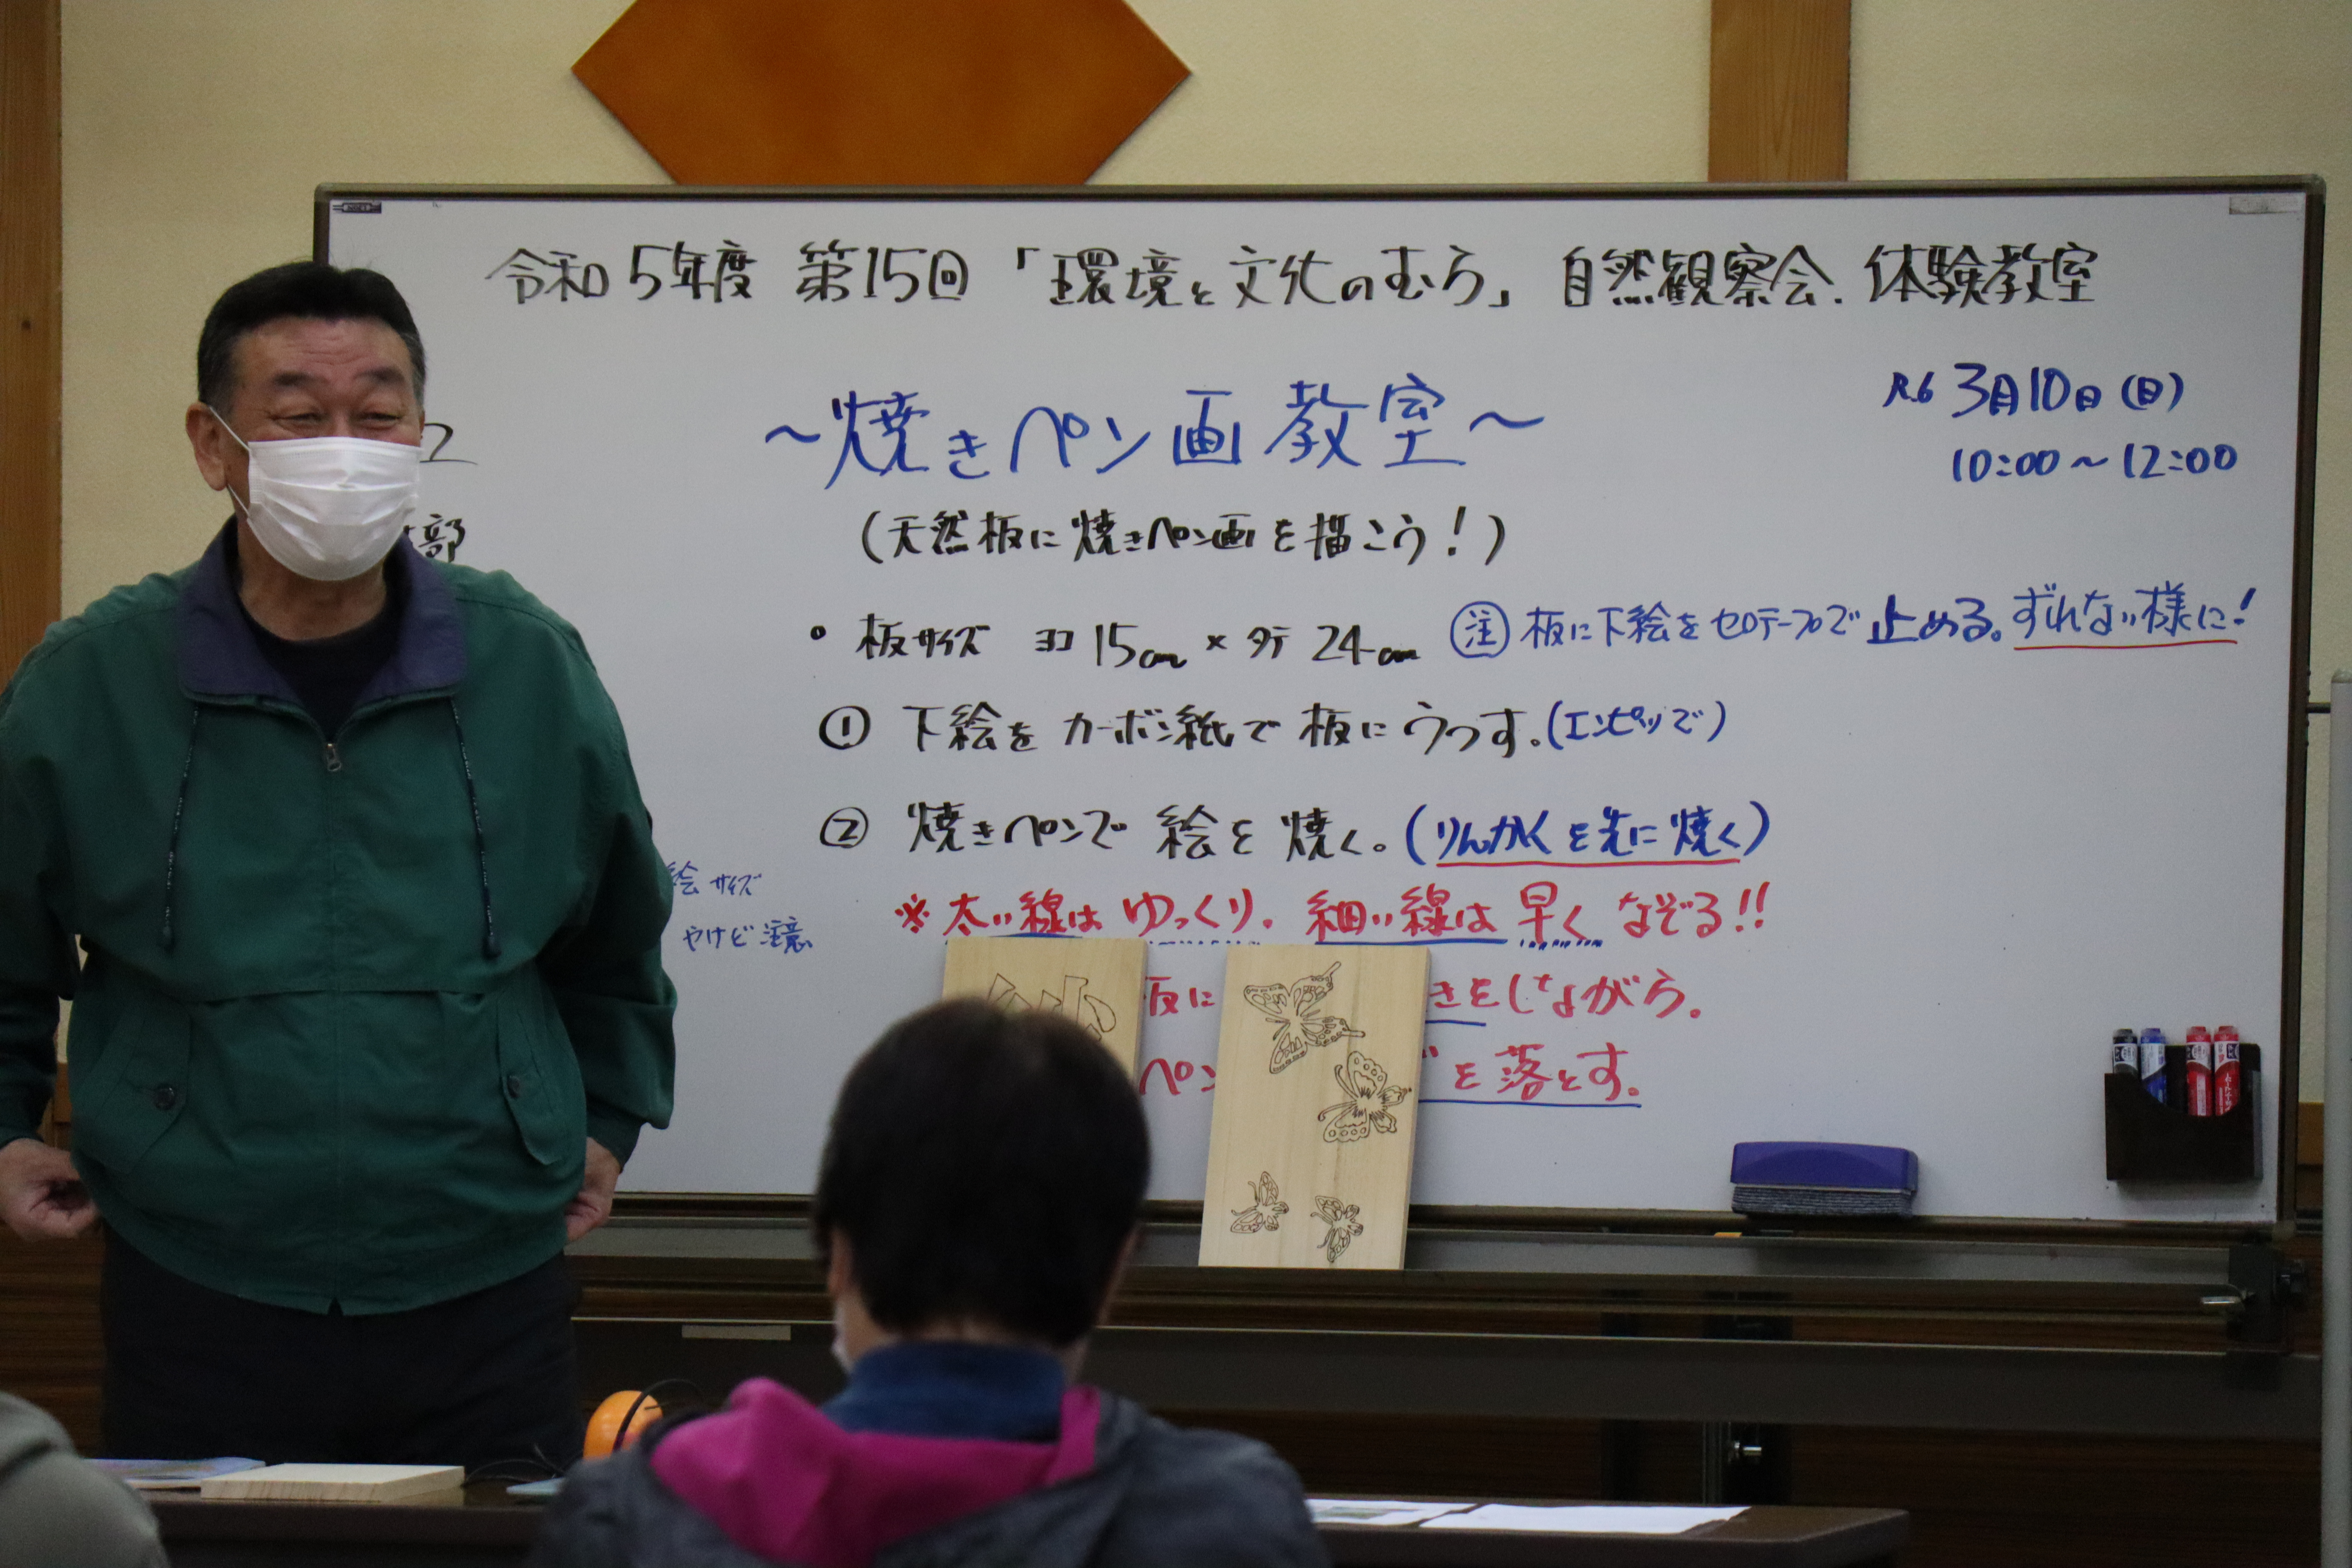 令和5年度 第15回 「環境と文化のむら」 自然観察会.体験教室
R.6 3月10日(日)
10:00～12:00
～焼きペン画教室～
(天然板に焼きペン画を描こう!)
部
• 板サイズ ヨコ 15cm × タテ 24cm
注 板に下絵をセロテープで止める。ずれない様に!
① 下絵をカーボン紙で板にうつす。(エンピツで)
② 焼きペンで絵を焼く。(りんかくを先に焼く)
絵サイズ
やけど注意
※太い線はゆっくり. 細い線は早くなぞる!!
板に きをしながら.
ペン を落とす.